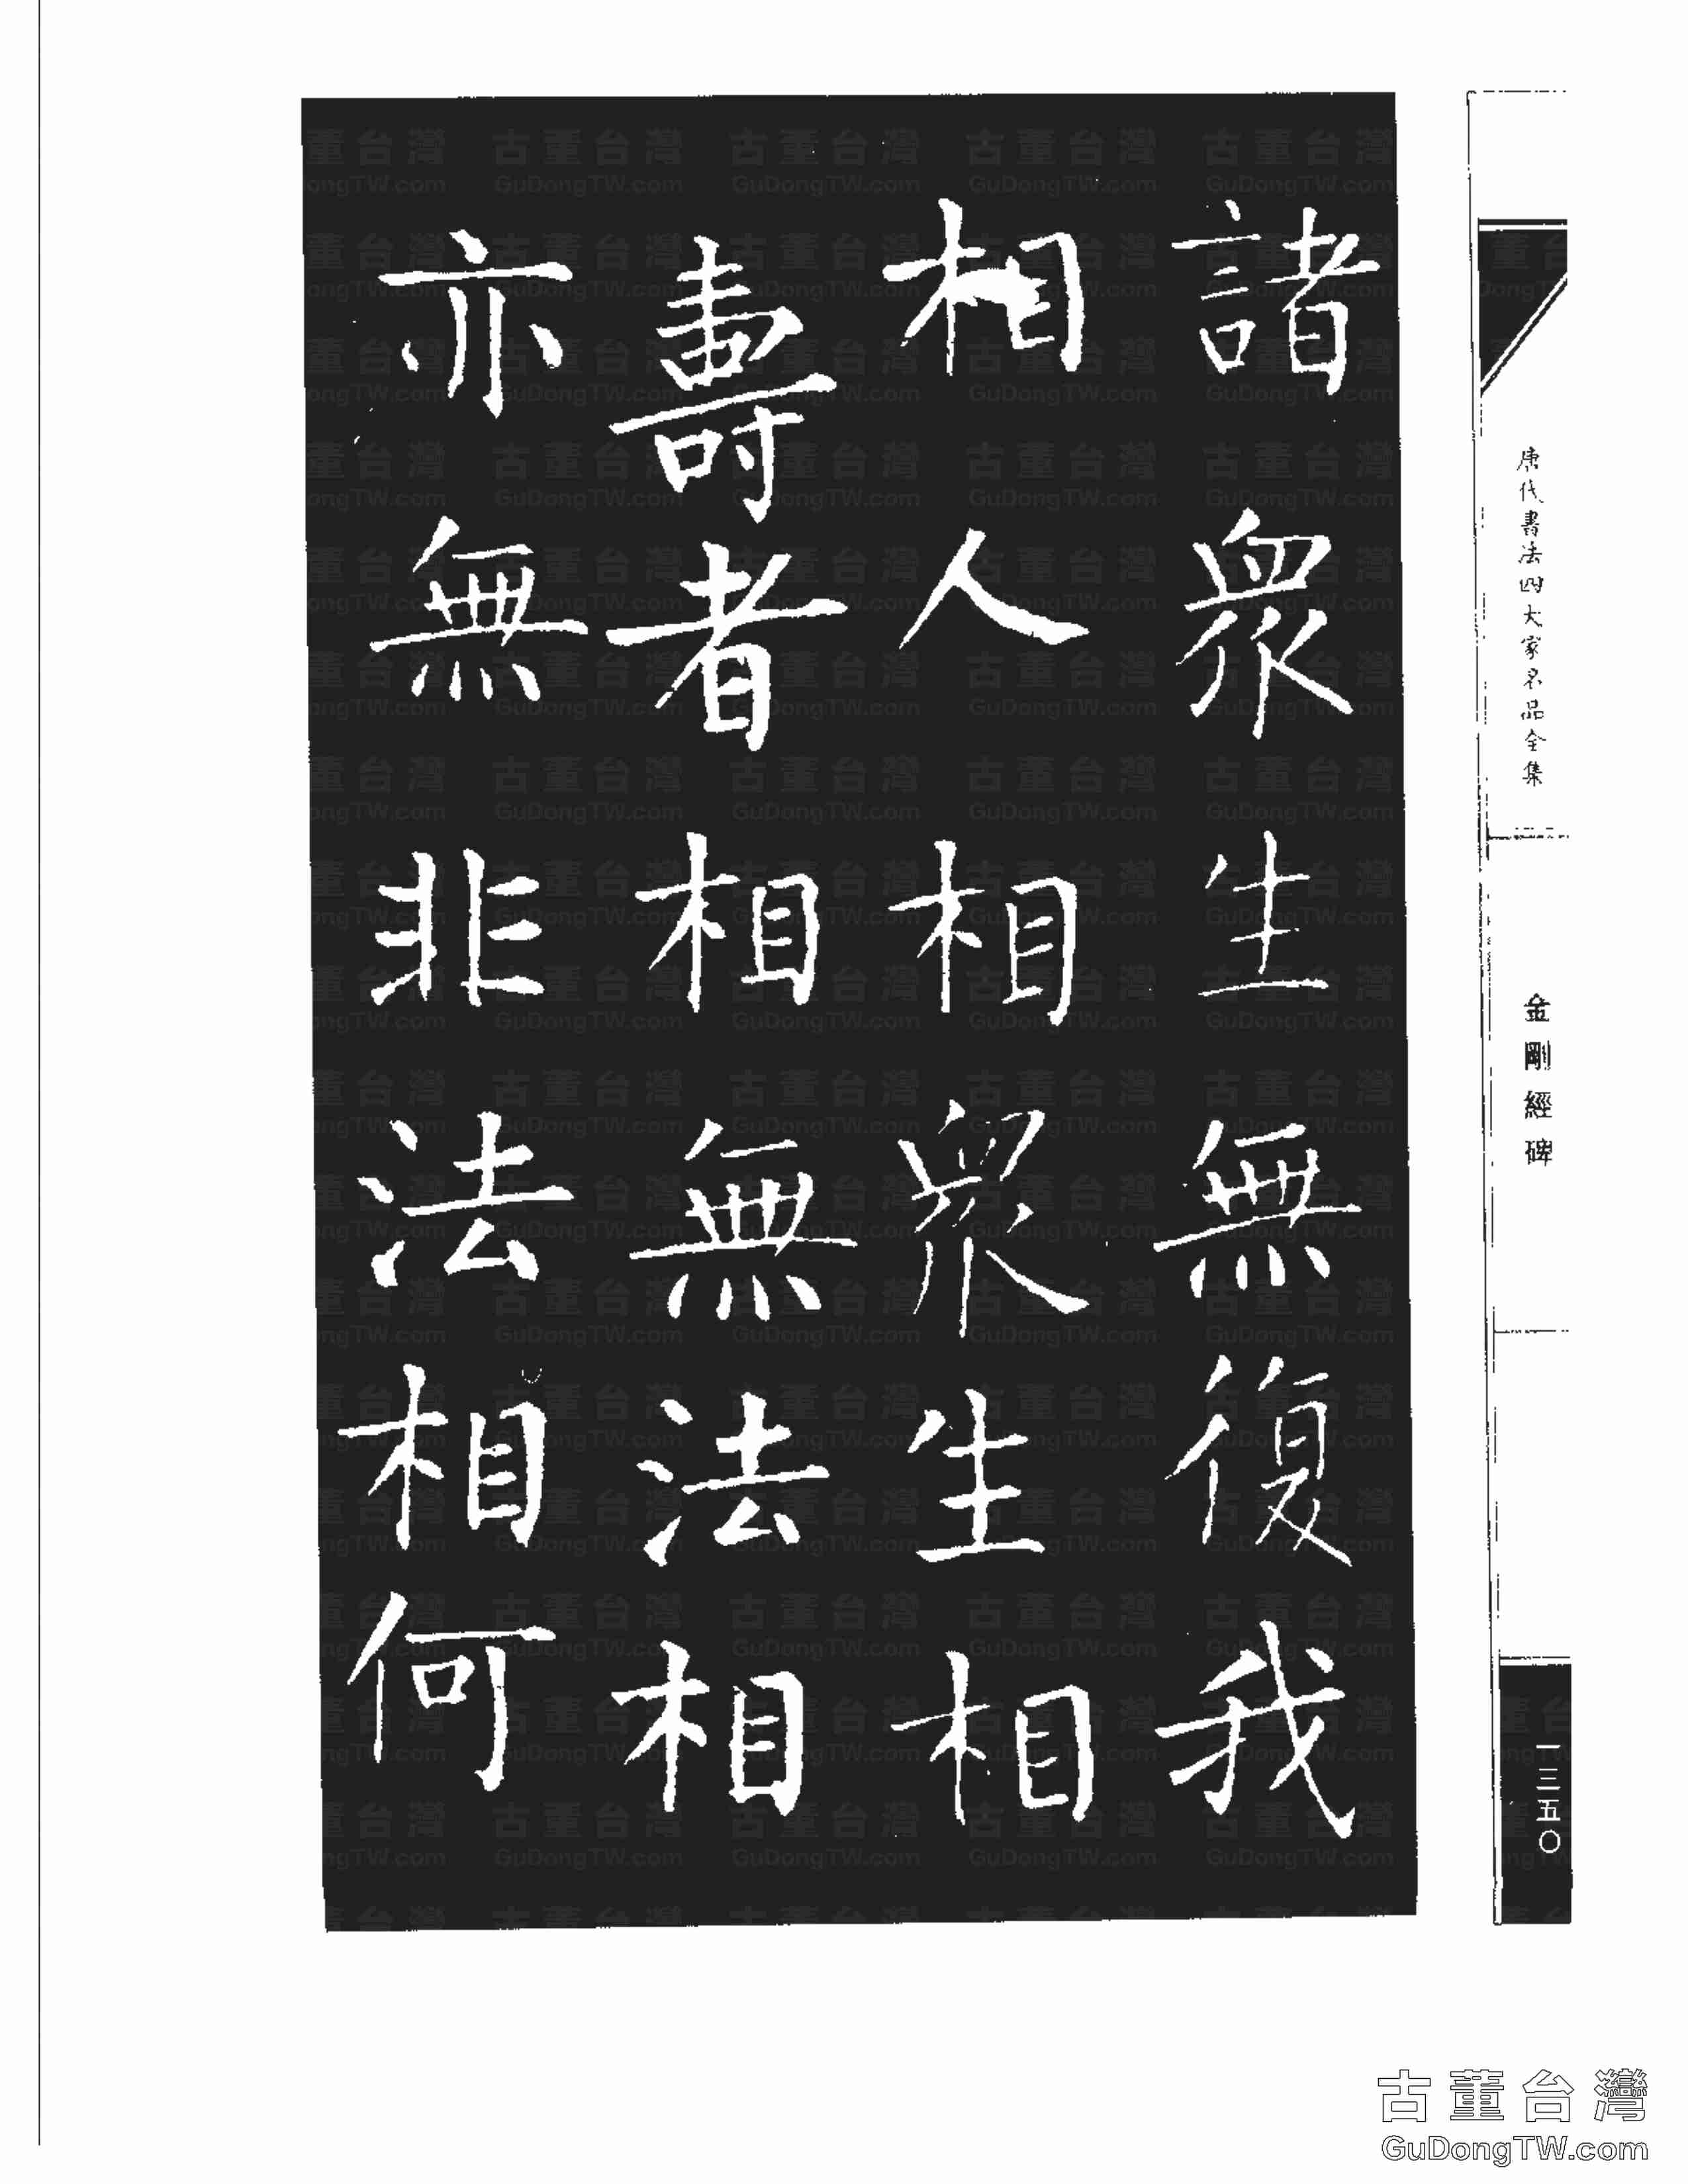 諸衆生無復我
相人相衆生相
壽者相無法相
亦無非法相何
唐代書法四大家名品全集
金剛經碑
一三五〇
古董台灣
GuDongTW.com